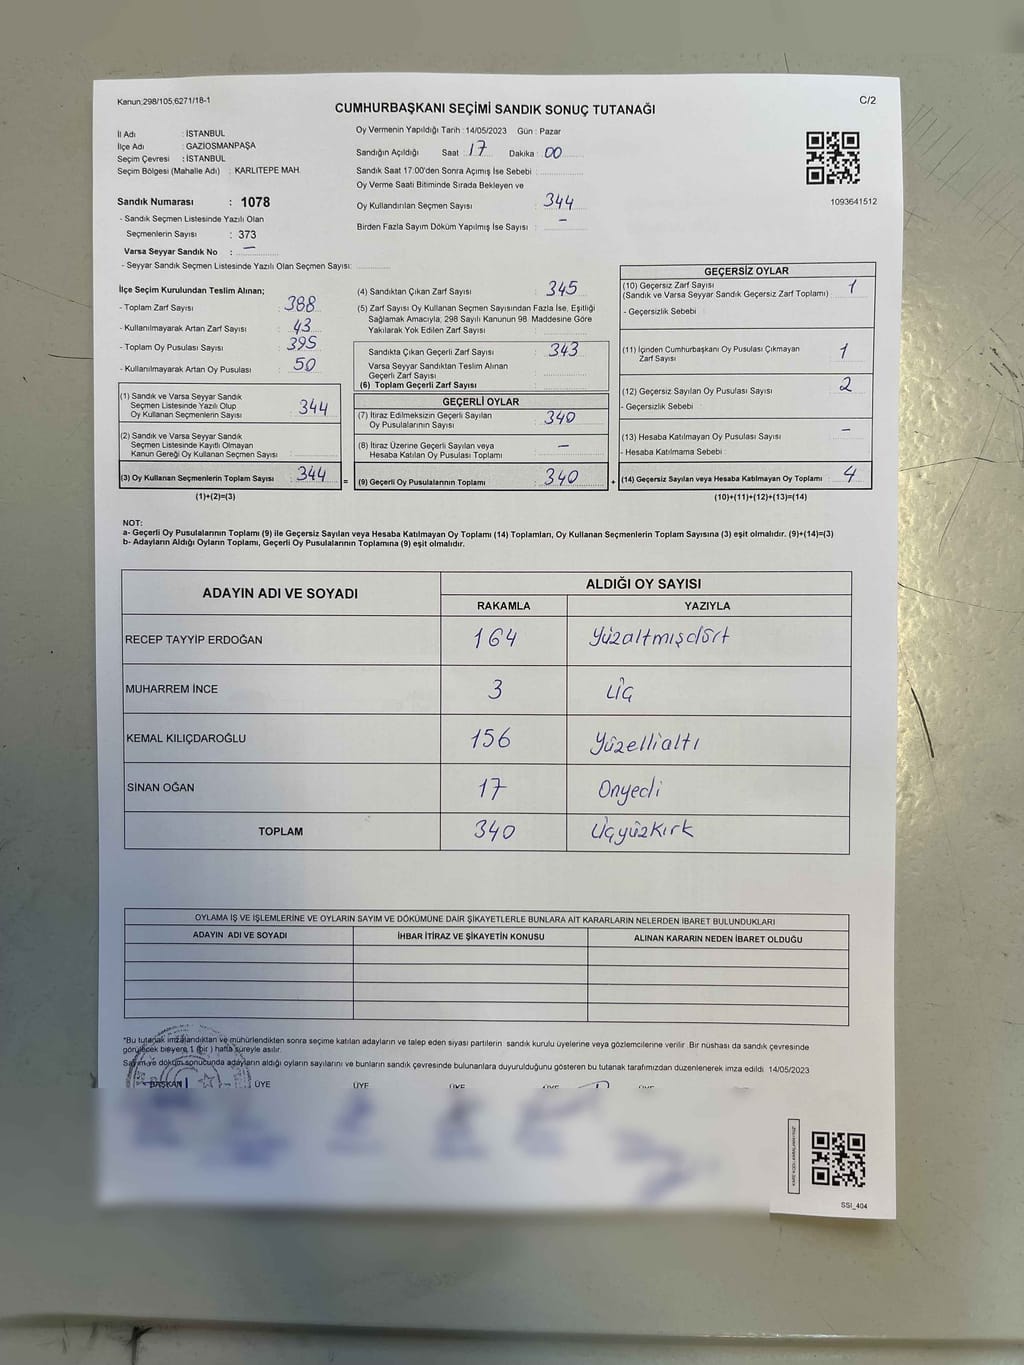 Kanun,298/105,6271/18-1
C/2
CUMHURBAŞKANI SEÇİMİ SANDIK SONUÇ TUTANAĞI
İl Adı : İSTANBUL
İlçe Adı : GAZİOSMANPAŞA
Seçim Çevresi : İSTANBUL
Seçim Bölgesi (Mahalle Adı) : KARLITEPE MAH.
Oy Vermenin Yapıldığı Tarih : 14/05/2023 Gün : Pazar
Sandığın Açıldığı Saat : 17 Dakika : 00
Sandık Saat 17:00'den Sonra Açımış İse Sebebi :
Oy Verme Saati Bitiminde Sırada Bekleyen ve
Oy Kullandırılan Seçmen Sayısı : 344
Birden Fazla Sayım Döküm Yapılmış İse Sayısı : -
1093641512
Sandık Numarası : 1078
- Sandık Seçmen Listesinde Yazılı Olan
Seçmenlerin Sayısı : 373
Varsa Seyyar Sandık No : -
- Seyyar Sandık Seçmen Listesinde Yazılı Olan Seçmen Sayısı:
İlçe Seçim Kurulundan Teslim Alınan;
- Toplam Zarf Sayısı : 388
- Kullanılmayarak Artan Zarf Sayısı : 43
- Toplam Oy Pusulası Sayısı : 395
- Kullanılmayarak Artan Oy Pusulası : 50
(1) Sandık ve Varsa Seyyar Sandık
Seçmen Listesinde Yazılı Olup
Oy Kullanan Seçmenlerin Sayısı : 344
(2) Sandık ve Varsa Seyyar Sandık
Seçmen Listesinde Kayıtlı Olmayan
Kanun Gereği Oy Kullanan Seçmen Sayısı :
(3) Oy Kullanan Seçmenlerin Toplam Sayısı : 344
(1)+(2)=(3)
=
(4) Sandıktan Çıkan Zarf Sayısı : 345
(5) Zarf Sayısı Oy Kullanan Seçmen Sayısından Fazla İse, Eşitliği
Sağlamak Amacıyla, 298 Sayılı Kanunun 98. Maddesine Göre
Yakılarak Yok Edilen Zarf Sayısı :
Sandıkta Çıkan Geçerli Zarf Sayısı : 343
Varsa Seyyar Sandıktan Teslim Alınan
Geçerli Zarf Sayısı :
(6) Toplam Geçerli Zarf Sayısı :
GEÇERLİ OYLAR
(7) İtiraz Edilmeksizin Geçerli Sayılan
Oy Pusulalarının Sayısı : 340
(8) İtiraz Üzerine Geçerli Sayılan veya
Hesaba Katılan Oy Pusulası Toplamı : -
(9) Geçerli Oy Pusulalarının Toplamı : 340
+
GEÇERSİZ OYLAR
(10) Geçersiz Zarf Sayısı : 1
(Sandık ve Varsa Seyyar Sandık Geçersiz Zarf Toplamı)
- Geçersizlik Sebebi :
(11) İçinden Cumhurbaşkanı Oy Pusulası Çıkmayan
Zarf Sayısı : 1
(12) Geçersiz Sayılan Oy Pusulası Sayısı : 2
- Geçersizlik Sebebi :
(13) Hesaba Katılmayan Oy Pusulası Sayısı : -
- Hesaba Katılmama Sebebi :
(14) Geçersiz Sayılan veya Hesaba Katılmayan Oy Toplamı : 4
(10)+(11)+(12)+(13)=(14)
NOT:
a- Geçerli Oy Pusulalarının Toplamı (9) ile Geçersiz Sayılan veya Hesaba Katılmayan Oy Toplamı (14) Toplamları, Oy Kullanan Seçmenlerin Toplam Sayısına (3) eşit olmalıdır. (9)+(14)=(3)
b- Adayların Aldığı Oyların Toplamı, Geçerli Oy Pusulalarının Toplamına (9) eşit olmalıdır.
ADAYIN ADI VE SOYADI
ALDIĞI OY SAYISI
RAKAMLA YAZIYLA
RECEP TAYYİP ERDOĞAN 164 Yüzaltmışdört
MUHARREM İNCE 3 Üç
KEMAL KILIÇDAROĞLU 156 Yüzellialtı
SİNAN OĞAN 17 Onyedi
TOPLAM 340 Üçyüzkırk
OYLAMA İŞ VE İŞLEMLERİNE VE OYLARIN SAYIM VE DÖKÜMÜNE DAİR ŞİKAYETLERLE BUNLARA AİT KARARLARIN NELERDEN İBARET BULUNDUKLARI
ADAYIN ADI VE SOYADI İHBAR İTİRAZ VE ŞİKAYETİN KONUSU ALINAN KARARIN NEDEN İBARET OLDUĞU
"Bu tutanak imzalandıktan ve mühürlendikten sonra seçime katılan adayların ve talep eden siyasi partilerin sandık kurulu üyelerine veya gözlemcilerine verilir. Bir nüshası da sandık çevresinde
görülecek bir yere 1 (bir ) hafta süreyle asılır.
Sayım ve döküm sonucunda adayların aldığı oyların sayılarını ve bunların sandık çevresinde bulunanlara duyurulduğunu gösteren bu tutanak tarafımızdan düzenlenerek imza edildi. 14/05/2023
BAŞKAN ÜYE ÜYE ÜYE
SSI_404